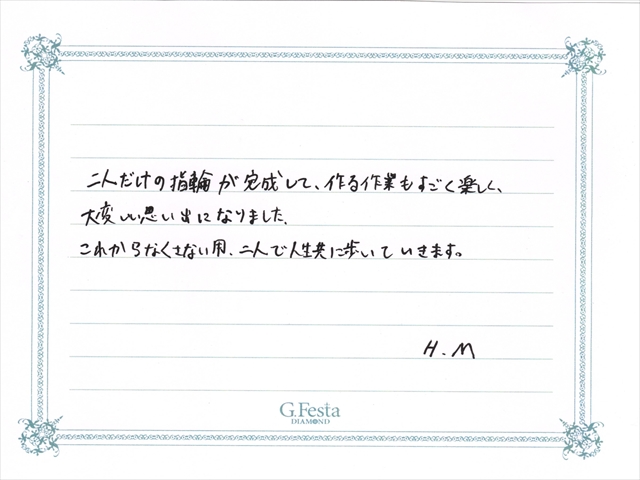 二人だけの指輪が完成して、作る作業もすごく楽しく、
大変いい思い出になりました。
これからなくさない用、二人で人生共に歩いていきます。
H.M
G.Festa
DIAMOND